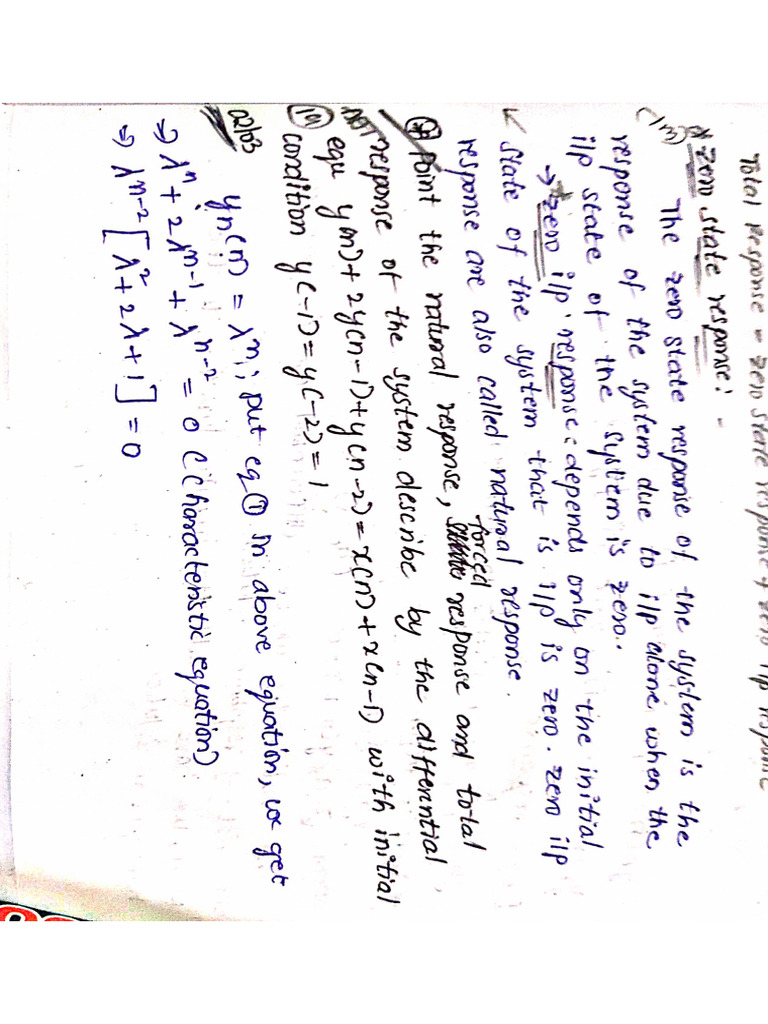 Total Response = zero state response + zero i/p response
* zero state response: -
The zero state response of the system is the
response of the system due to i/p alone when the
i/p state of the system is zero.
→ zero i/p response: depends only on the initial
state of the system that is i/p is zero. zero i/p
response are also called natural response.
Point the natural response, forced response and total
response of the system describe by the differntial
equ y(n) + 2y(n-1) + y(n-2) = x(n) + x(n-1) with initial
condition y(-1) = y(-2) = 1
yn(n) = λⁿ; put eq ① in above equation, we get
⇒ λⁿ + 2λⁿ⁻¹ + λⁿ⁻² = 0 (Characteristic equation)
⇒ λⁿ⁻² [λ² + 2λ + 1] = 0